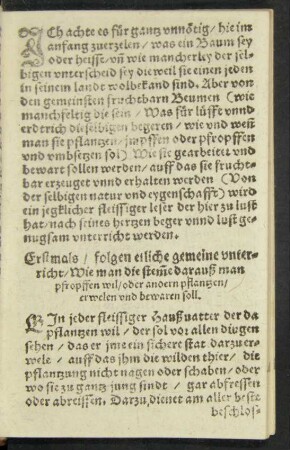 ICh achte es für gantz vnnötig / hie im
anfang zuerzelen / was ein Baum sey
oder heisse / vñ wie mancherley der sel-
bigen vnterscheid sey dieweil sie einen jeden
in seinem lande wolbekand sind. Aber von
den gemeinsten fruchtbarn Beumen (wie
manchfeltig die sein / Was für lüffe vnnd
erdtrich dieselbigen begeren / wie vnd weñ
man sie pflantzen / jmpffen oder pfropffen
vnd vmbsetzen sol) Wie sie gearbeitet vnd
bewart sollen werden / auff das sie frucht-
bar erzeuget vnnd erhalten werden (Von
der selbigen natur vnd eygenschafft) wird
ein jeglicher fleissiger leser der hier zu lust
hat / nach seines hertzen beger vnnd lust ge-
nugsam vnterricht werden.
Erstmals / folgen etliche gemeine vnter-
richt / Wie man die stem̃e darauß man
pfropffen wil / oder anders pflantzen /
erwelen vnd bewaren soll.
EIn jeder fleissiger Haußuatter der da
pflantzen wil / der sol vor allen dingen
sehen / das er jme ein sichere stat darzu er-
wele / auff das jhm die wilden thier / die
pflantzung nicht nagen oder schaben / oder
wo sie zu gantz jung sindt / gar abfressen
oder abreissen. Darzu dienet am aller beste
beschlos-